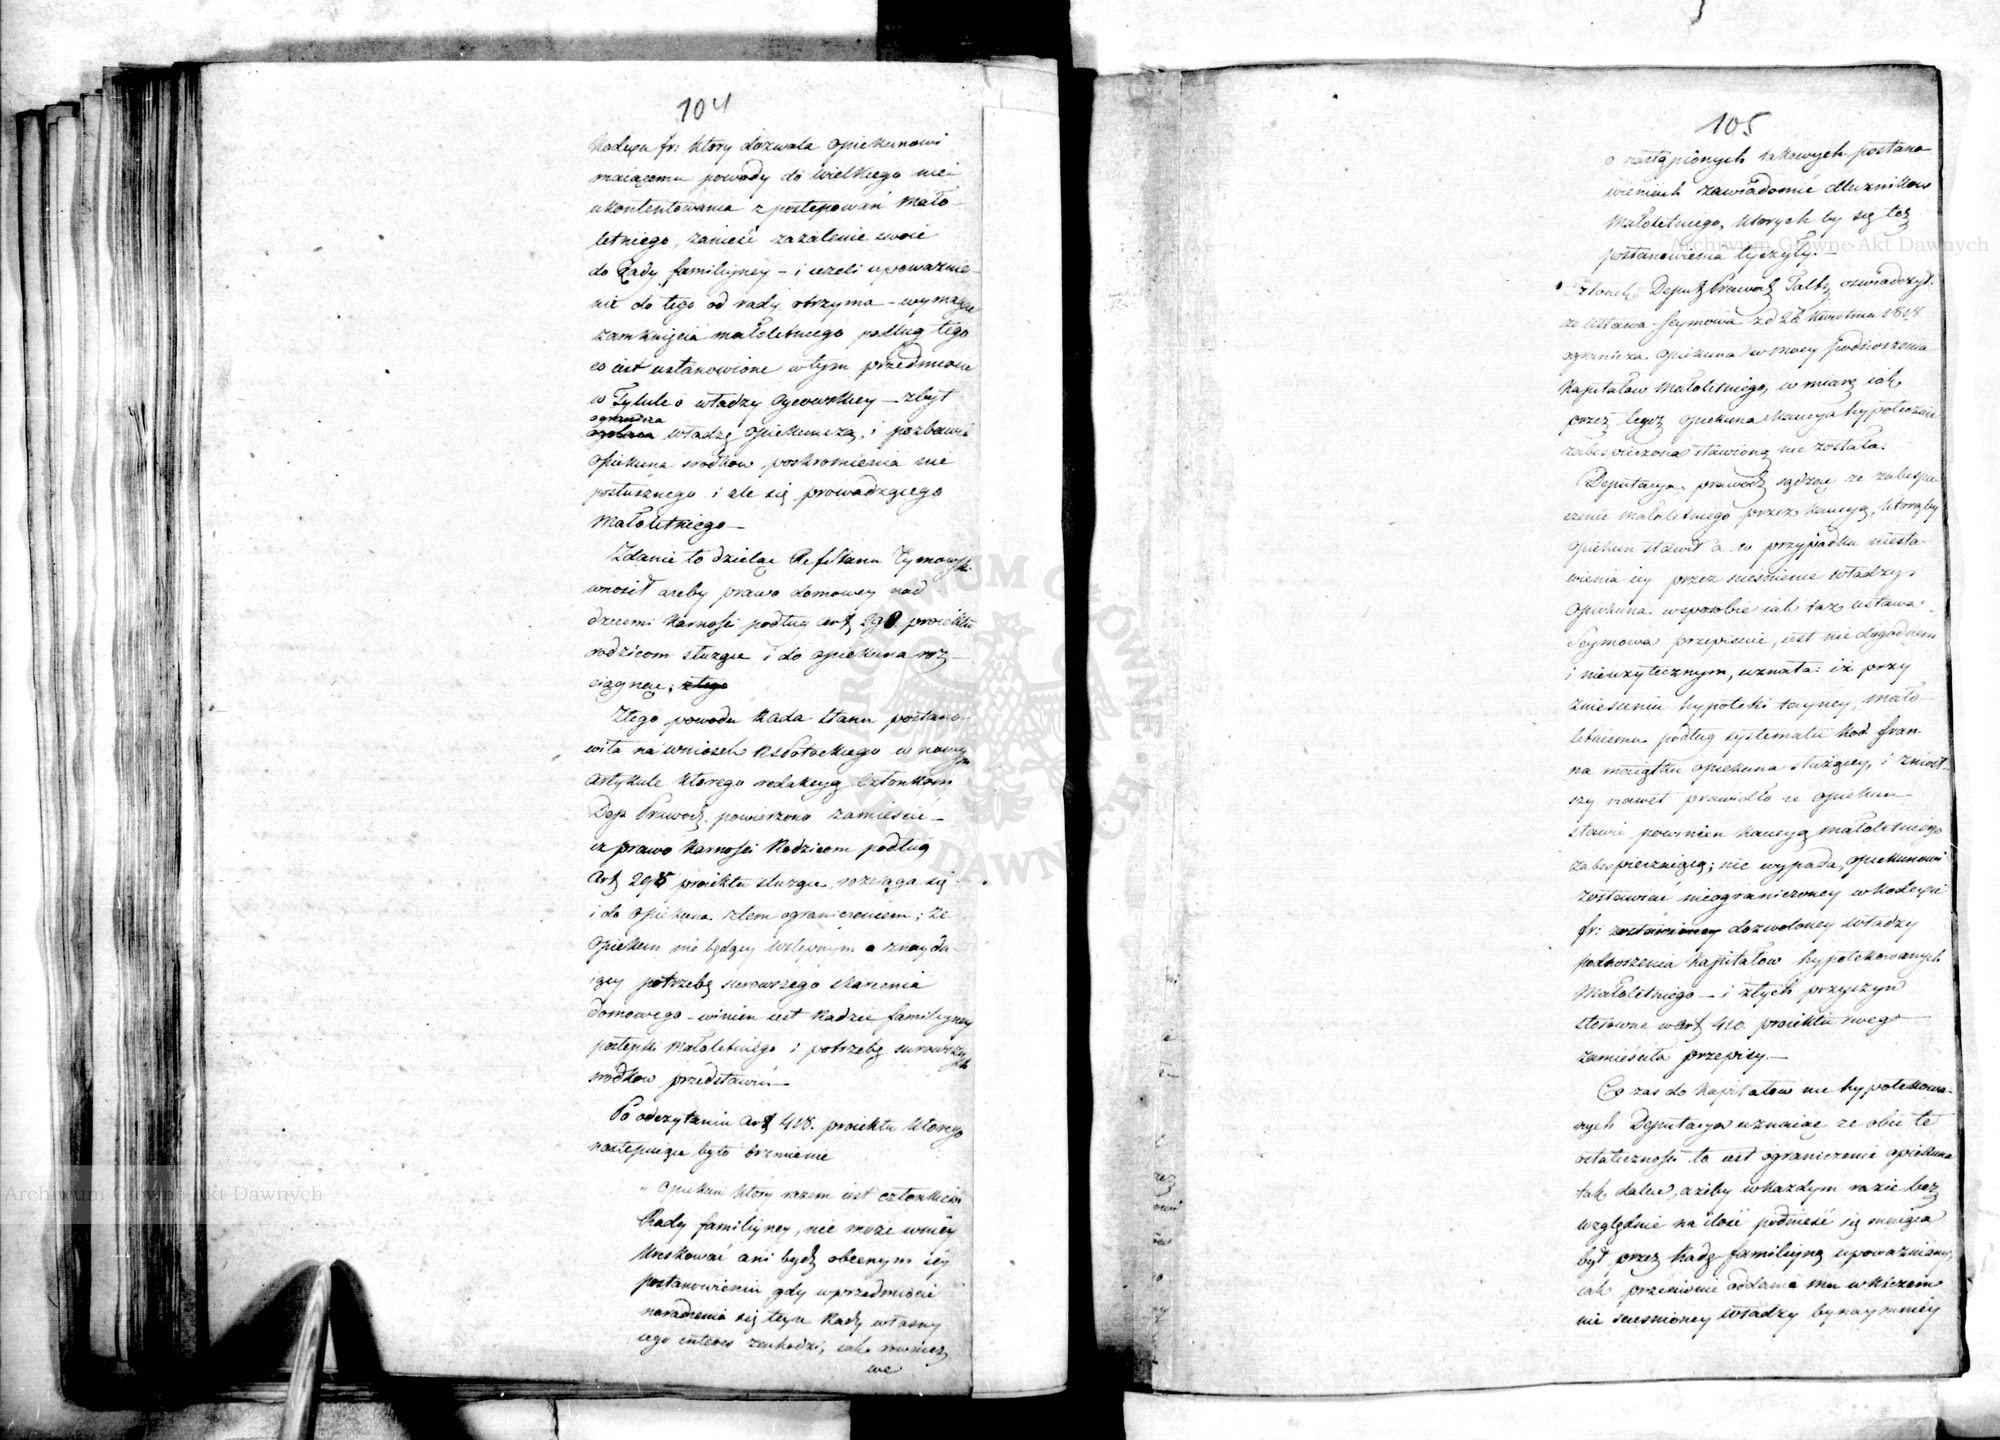 104
Kodexu fr: który dozwala opiekunowi
maiącemu powody do wielkiego nie
ukontentowania z postępowań mało-
letniego, zanieść zażalenie swoie
do Rady familiyney – i ieżeli upoważnie-
nie do tego od rady otrzyma – wymagać
zamknięcia małoletniego podług tego
co iest ustanowione w tym przedmiocie
w Tytule o władzy oycowskiey – zbyt
ogranicza
władzę opiekuńczą, i pozbawia
opiekuna srodków poskromienia nie
posłusznego i źle się prowadzącego
Małoletniego –
Zdanie to dzieląc Ref. Stanu Tymowski
wnosił ażeby prawo domowey nad
dziecmi karności podług art 298 proiektu
rodzicom służące i do opiekuna roz-
ciągnąć;
Z tego powodu Rada Stanu postano-
wiła na wniosek Potockiego w nowym
Artykule którego redakcyą Członkom
Dep Prawod. powierzono zamieścić –
iż prawo karności Rodzicom podług
Art 298 proiektu służące, rozciąga się
i do opiekuna z tem ograniczeniem; że
opiekun nie będący wstępnym a znaydu-
iący potrzebę surowszego skarcenia
domowego – winien iest Radzie familiyney
postępki Małoletniego i potrzebę surowszych
srodków przedstawić –
Po odczytaniu Art 418. proiektu którego
następuiące było brzmienie
" Opiekun który razem iest członkiem
Rady familiyney, nie może w niey
kreskować ani bydź obecnym iey
postanowieniu gdy w przedmiocie
naradzenia się teyże Rady własny
iego interes zachodzi, iak również
we
105
o nastąpionych takowych postano
wieniach zawiadomić dłużników
Małoletniego, których by się też
postanowienia tyczyły. –
Członek Deput Prawod oświadczył.
że Ustawa Seymowa z d 26 kwietnia 1818
ogranicza opiekuna w mocy podnoszenia
Kapitałów Małoletniego, w miarę iak
przez tegoż opiekuna kaucya hypotecznie
zabespieczona stawioną nie została.
Deputacya prawod sądząc że zabespie
czenie małoletniego przez kaucyą, którąby
opiekun stawił a w przypadku niesta-
wienia iey przez scieśnienie władzy
opiekuna w sposobie iak taż ustawa
Seymowa przepisuie, iest niedogodnem
i nieużytecznym, uznała: iż przy
zniesieniu hypoteki tayney, mało-
letniemu podług systematu Kod fran.
na maiątku opiekuna służącey, i zniosł-
szy nawet prawidło że opiekun
stawić powinien kaucyą małoletniego
zabespieczaiącą; nie wypada, opiekunowi
zostawiać nieograniczoney w kodexie
fr: dozwoloney władzy
podnoszenia kapitałów hypotekowanych
Małoletniego – i z tych przyczyn
stosowne w Art 420. proiektu swego
zamieściła przepisy. –
Co zas do kapitałow nie hypotekowa-
nych Deputacya uznaiąc że obie te
ostateczności to iest ograniczenie opiekuna
tak dalece, ażeby w każdym razie bez
względnie na ilość podnieść się maiącą
był przez Radę familiyną upoważniany,
iak przeciwnie oddanie mu w niczem
nie scieśnioney władzy bynaymniey
Archiwum Główne Akt Dawnych
Archiwum Główne Akt Dawnych
ARCHIWUM GŁÓWNE AKT DAWNYCH